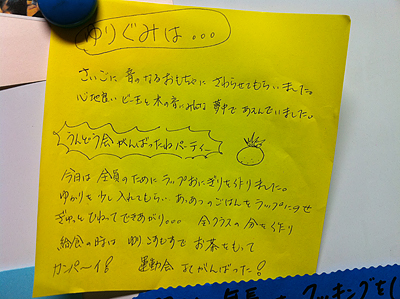 ゆりぐみは...
さいごに 音のなるおもちゃに さわらせてもらいました。
心地良いビー玉と木の音にみんな 夢中であそんでいました。
うんどう会 がんばったねパーティー
今日は全員のためにラップおにぎりを作りました。
ゆかりを少し入れてもらい、あつあつのごはんをラップにのせ
ぎゅっとひねってできあがり... 全クラスの分を作り
給食の時は ゆり こすもすで お茶をもって
カンパーイ! 運動会 よくがんばった!